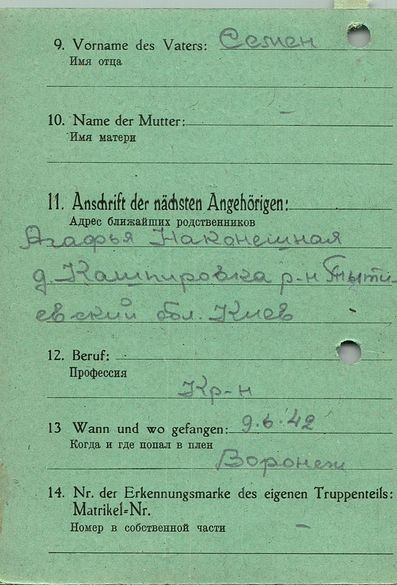 9. Vorname des Vaters: Семен
Имя отца
10. Name der Mutter: –
Имя матери
11. Anschrift der nächsten Angehörigen:
Адрес ближайших родственников
Агафья Наконешная
д. Кашпировка р-н Тыти-
евский обл. Киев
12. Beruf:
Профессия
Кр-н
13 Wann und wo gefangen: 9.6.42
Когда и где попал в плен
Воронеж
14. Nr. der Erkennungsmarke des eigenen Truppenteils:
Matrikel-Nr.
Номер в собственной части –